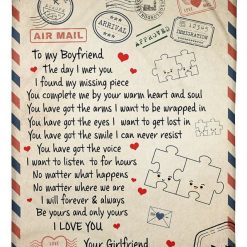 AIR MAIL
ARRIVAL
APPROVED
IMMIGRATION
To my Boyfriend
The day I met you
I found my missing piece
You complete me by your warm heart and soul
You have got the arms I want to be wrapped in
You have got the eyes I want to get lost in
You have got the smile I can never resist
You have got the voice
I want to listen to for hours
No matter what happens
No matter where we are
I will forever & always
Be yours and only yours
I LOVE YOU
Your Girlfriend